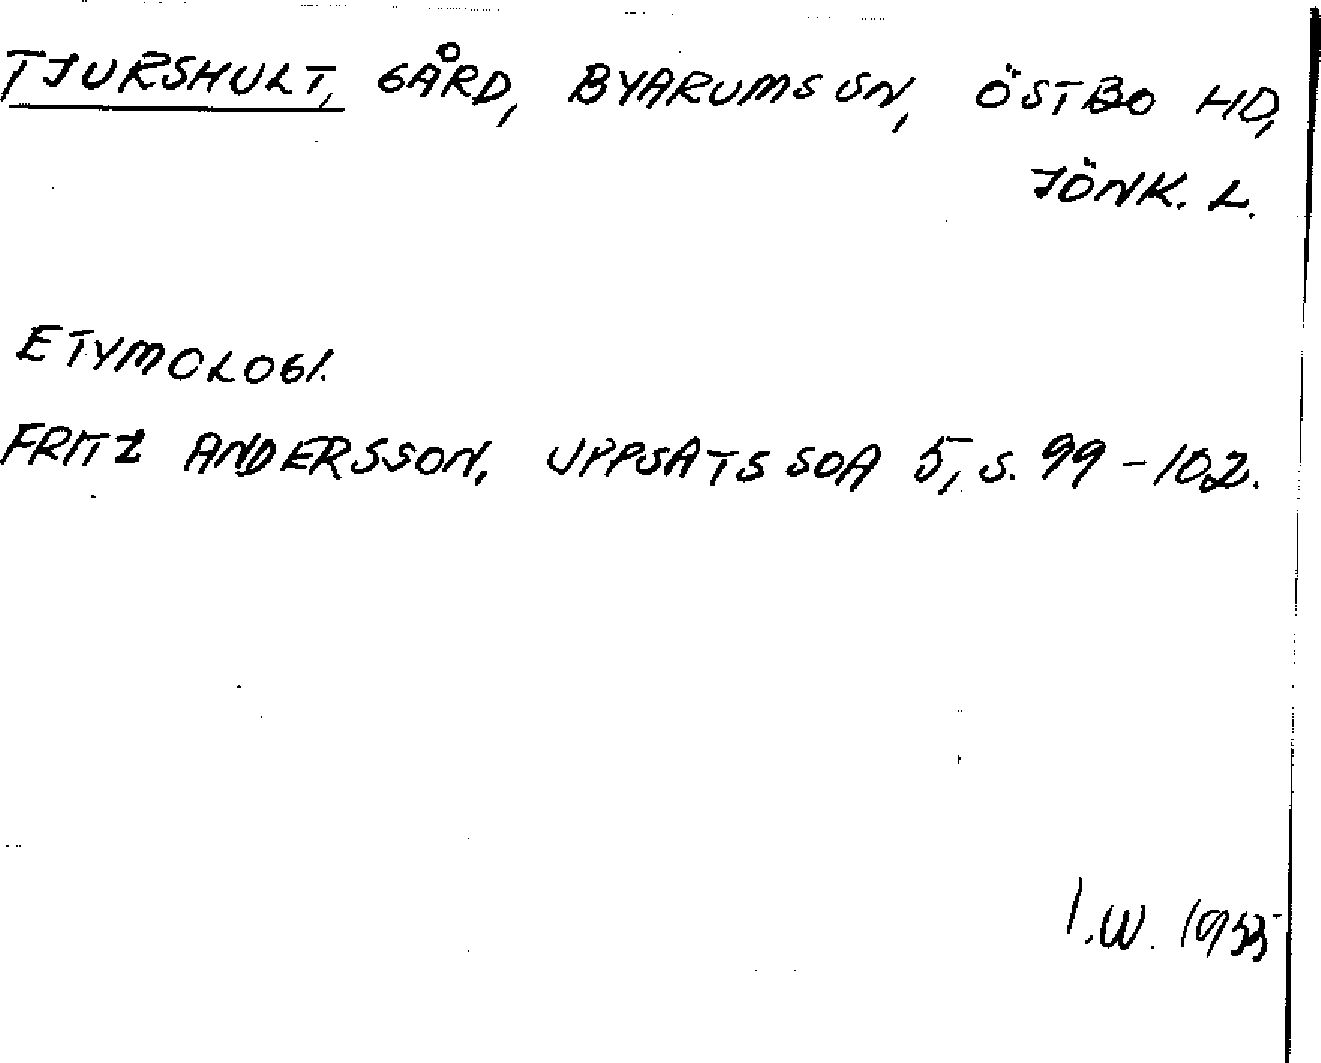 TJURSHULT, GÅRD, BYARUMS SN, ÖSTBO HD,
JÖNK. L.
ETYMOLOGI.
FRITZ ANDERSSON, UPPSATS SOA 5, S. 99-102.
I.W. 1955